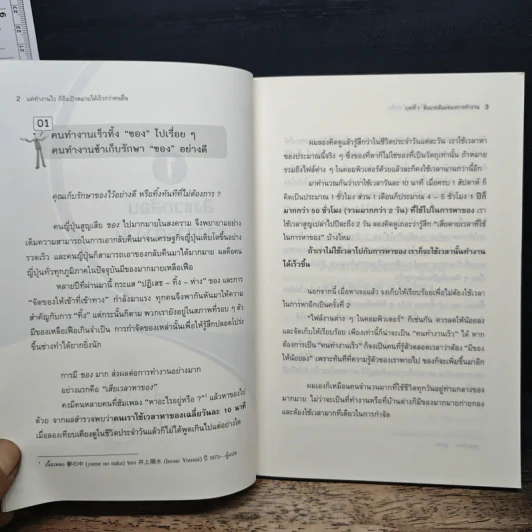 2 แค่ทำงานไว ก็ถึงเป้าหมายได้เร็วกว่าคนอื่น
01
คนทำงานเร็วทิ้ง “ของ” ไปเรื่อย ๆ
คนทำงานช้าเก็บรักษา “ของ” อย่างดี
คุณเก็บรักษาของไว้อย่างดี หรือทิ้งทันทีที่ไม่ต้องการ ?
คนญี่ปุ่นสูญเสีย ของ ไปมากมายในสงคราม จึงพยายามอย่าง
เต็มความสามารถในการเอากลับคืนมาจนเศรษฐกิจญี่ปุ่นเติบโตขึ้นอย่าง
รวดเร็ว และคนญี่ปุ่นก็สามารถเอาของกลับคืนมาได้มากมาย ผลคือคน
ญี่ปุ่นทั่วทุกภูมิภาคในปัจจุบันมีของมากมายเหลือเฟือ
หลายปีที่ผ่านมานี้ กระแส “ปฏิเสธ – ทิ้ง – ห่าง” ของ และการ
“จัดของให้เข้าที่เข้าทาง” กำลังมาแรง ทุกคนจึงพากันหันมาให้ความ
สำคัญกับการ “ทิ้ง” แต่กระนั้นก็ตาม พวกเรายังอยู่ในสภาพที่รอบ ๆ ตัว
มีของเหลือเฟือเกินจำเป็น การกำจัดของเหล่านั้นเพื่อให้รู้สึกปลอดโปร่ง
ขึ้นช่างทำได้ยากยิ่งนัก
การมี ของ มาก ส่งผลต่อการทำงานอย่างมาก
อย่างแรกคือ “เสียเวลาหาของ”
คงมีคนหลายคนที่ฮัมเพลง “หาอะไรอยู่หรือ ?” แล้วหาของไป
ด้วย จากผลสำรวจพบว่าคนเราใช้เวลาหาของเฉลี่ยวันละ 10 นาที
เมื่อลองเทียบเคียงดูในชีวิตประจำวันแล้วก็ไม่ได้พูดเกินไปแต่อย่างใด
เนื้อเพลง 夢の中 (yume no naka) ของ 井上陽水 (Inoue Yousui) ปี 1973—ผู้แปล
บทที่ 1 3
ผมลองคิดดูแล้วรู้สึกว่าในชีวิตประจำวันแต่ละวัน เราใช้เวลาหา
ของประมาณนี้จริง ๆ ซึ่งของที่หาก็ไม่ใช่ของที่เป็นวัตถุเท่านั้น ถ้าหมาย
รวมถึงไฟล์ต่าง ๆ ในคอมพิวเตอร์ด้วยแล้วละก็คงใช้เวลานานกว่านี้อีก
มาคำนวณกันว่าเราใช้เวลาวันละ 10 นาที เมื่อครบ 1 สัปดาห์ ก็
คิดเป็นประมาณ 1 ชั่วโมง ส่วน 1 เดือนก็ประมาณ 4 – 5 ชั่วโมง 1 ปีก็
มากกว่า 50 ชั่วโมง (รวมมากกว่า 2 วัน) ที่ใช้ไปในการหาของ เรา
ใช้เวลาสูญเปล่าไปปีละถึง 2 วัน ลองคิดดูเถอะว่ารู้สึก “เสียดายเวลาที่ใช้
ในการหาของ” บ้างไหม
ถ้าเราไม่ใช้เวลาไปกับการหาของ เราก็จะใช้เวลานั้นทำงาน
ได้เร็วขึ้น
นอกจากนี้ เมื่อหาเจอแล้ว จงเก็บให้เรียบร้อยเพื่อไม่ต้องใช้เวลา
ในการหาอีกเป็นครั้งที่ 2
“ไฟล์งานต่าง ๆ ในคอมพิวเตอร์” ก็เช่นกัน ควรลดให้น้อยลง
และจัดเก็บให้เรียบร้อย เพียงเท่านี้ก็น่าจะเป็น “คนทำงานเร็ว” ได้ หาก
ต้องการเป็น “คนทำงานเร็ว” ก็จงเป็นคนที่รู้ตัวตลอดเวลาว่าต้อง “มีของ
ให้น้อยลง” เพราะทันทีที่ความรู้ตัวของเราหายไป ของก็จะเพิ่มขึ้นมาอีก
ผมเองก็เหมือนคนจำนวนมากที่ใช้ชีวิตทุกวันอยู่ท่ามกลางของ
มากมาย ไม่ว่าจะเป็นที่ทำงานหรือที่บ้านต่างก็มีของมากมายก่ายกอง
และต้องใช้เวลามากทีเดียวในการกำจัด